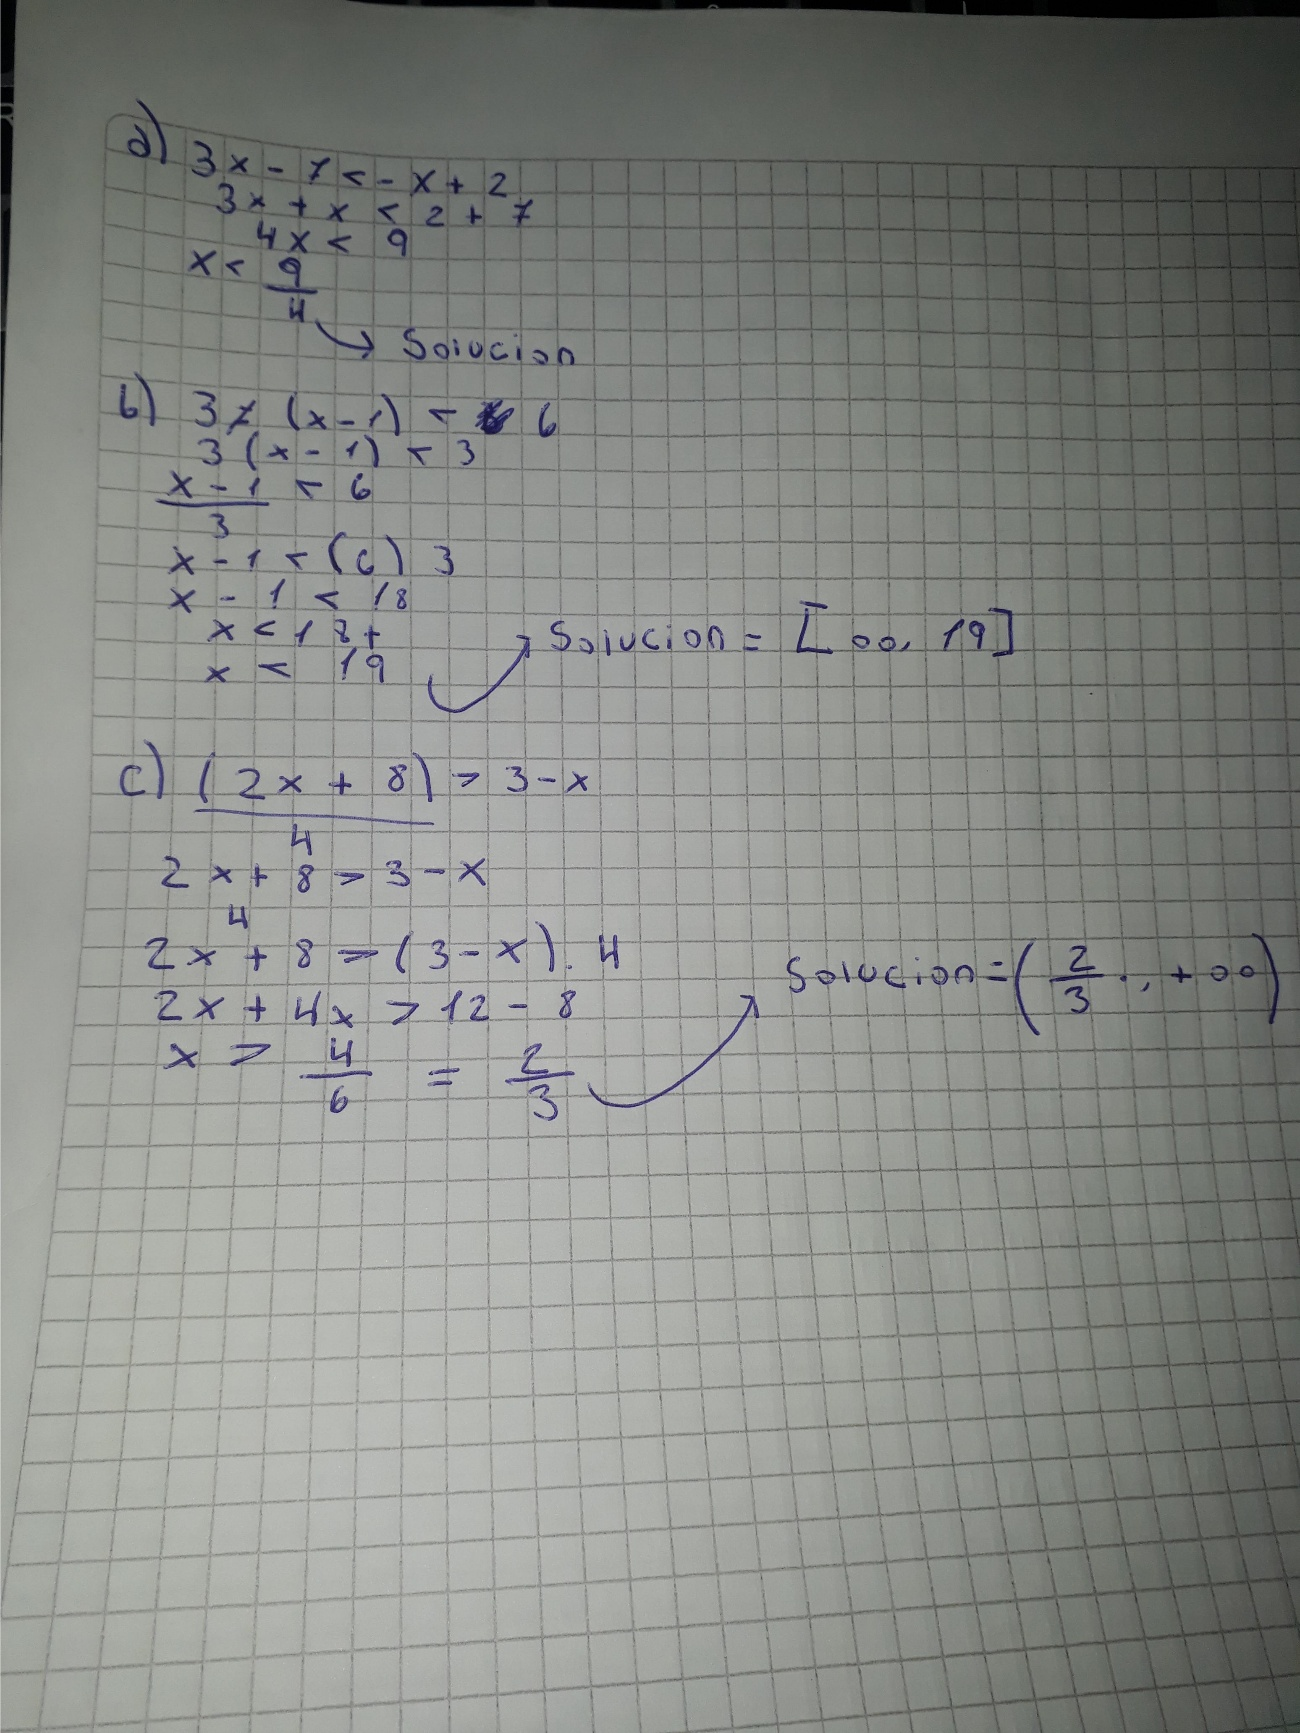 a) 3x - 7 < - x + 2
3x + x < 2 + 7
4x < 9
x < 9/4
→ Solucion
b) 3x (x - 1) < 6
3 (x - 1) < 3
x - 1 / 3 < 6
x - 1 < (6) 3
x - 1 < 18
x < 18 +
x < 19 → Solucion = [ oo, 19]
c) (2x + 8) / 4 > 3 - x
2x + 8 > 3 - x
4
2x + 8 > (3 - x) . 4
2x + 4x > 12 - 8
x > 4/6 = 2/3 → Solucion = ( 2/3 ., + oo)